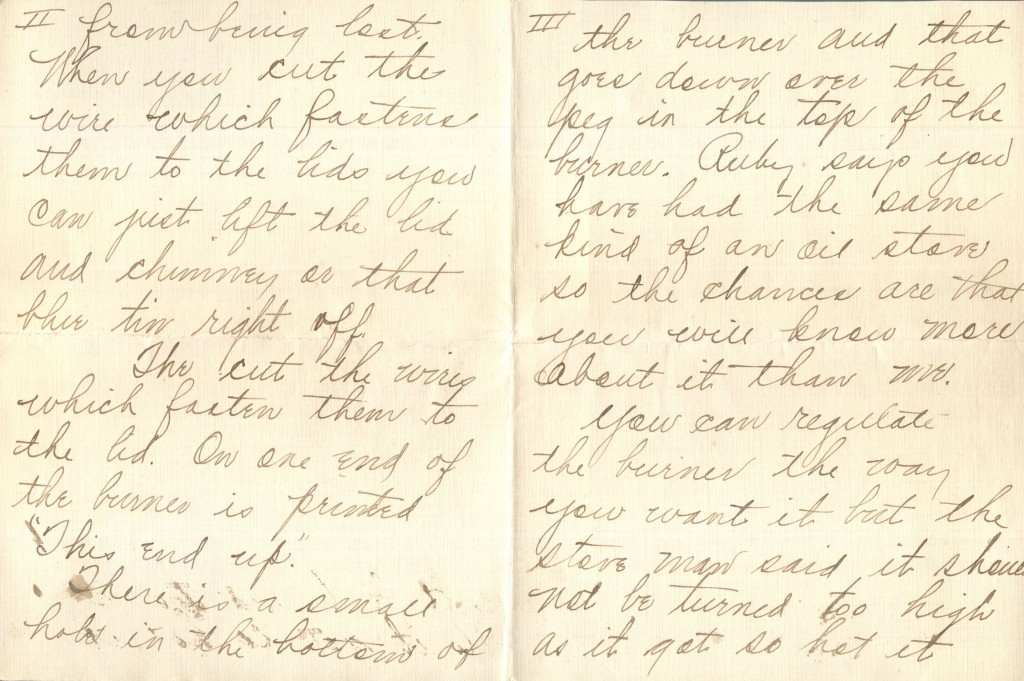 II
from being lost.
When you cut the
wire which fastens
them to the lids you
can just lift the lid
and chimney or that
blue tin right off.
The cut the wire
which fasten them to
the lid. On one end of
the burner is printed
"This end up."
There is a small
hole in the bottom of
III
the burner and that
goes down over the
peg in the top of the
burner. Ruby says you
have had the same
kind of an oil stove
so the chances are that
you will know more
about it than me.
You can regulate
the burner the way
you want it but the
stove man said it should
not be turned too high
as it got so hot it